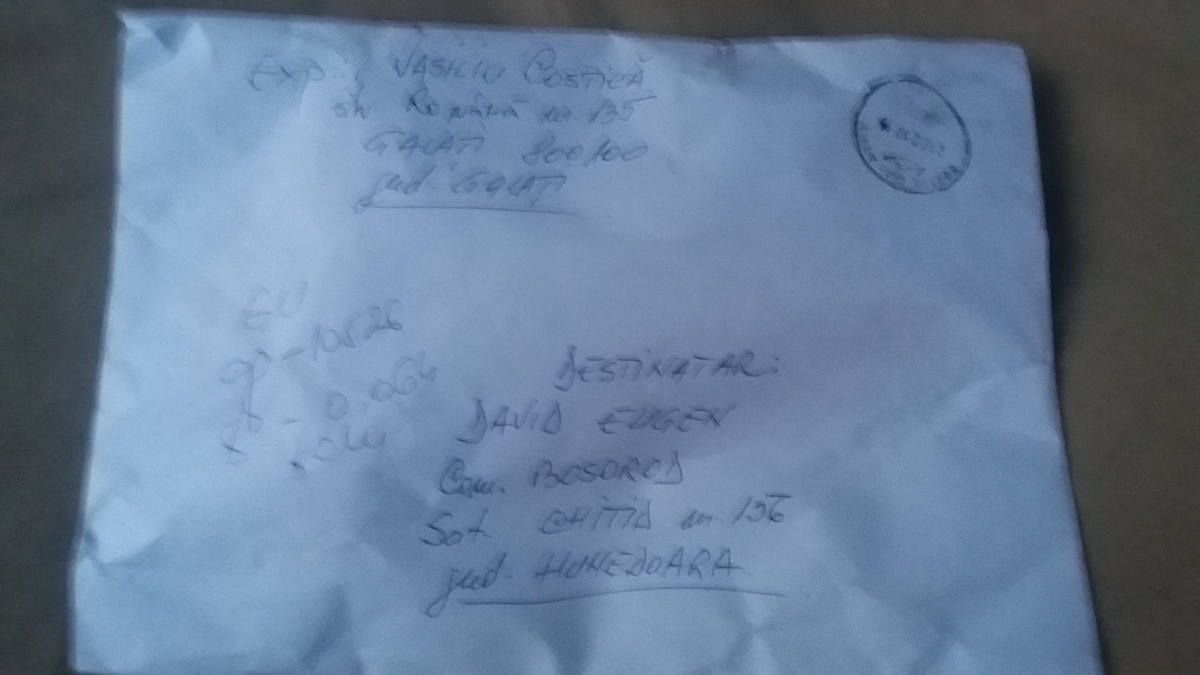 Exp: VASILIU COSTICĂ
str Română nr 135
GALATI 800100
jud. GALATI
EU
gp - 10526
- 0,064
DESTINATAR:
DAVID EUGEN
Com. BOSOROD
Sat CHITID nr 136
jud. HUNEDOARA